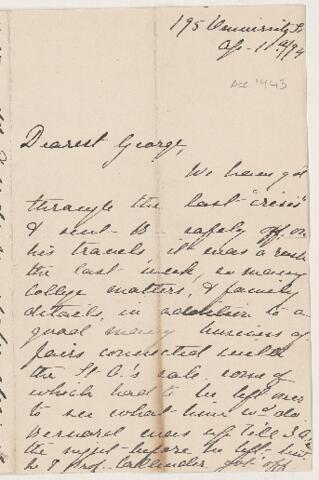 195 University St
Ap. 11th/94
Acc 943
Dearest George,
We have got
through the last "crisis"
& sent B. safely off on
his travels, it was a rush
the last week, so many
college matters, & family
details, in addition to a
good many business af
fairs connected with
the St. L's sale some of
which had to be left over
to see what time wd do
Bernard was up till 3 a.m.
the night before he left but
he & Prof. Callendar got off